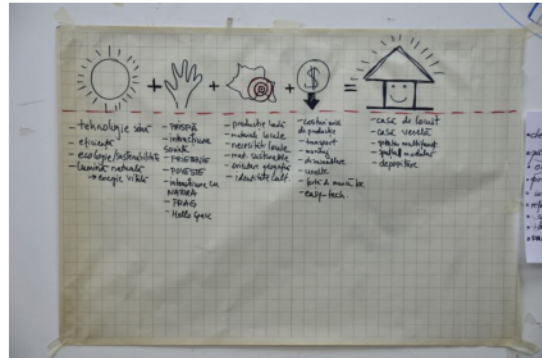 + + + $ =
- tehnologie solară
- eficiență
- ecologie/sustenabilitate
- lumină naturală
→ energie vitală
- PRISPĂ
- interacțiune socială
- PRIETENIE
- POVESTE
- interacțiune cu NATURA
- PRAG
- Hello Space
- producție locală
- materiale locale
- necesități locale
- mat. sustenabile
- orientare geografică
- identitate cult.
- costuri mici de producție
- transport
- montaj
- demontare
- unelte
- forță de muncă loc.
- easy-tech.
- casă de locuit
- casă verde
- spațiu multifuncț.
- spațiu modular
- depozitare